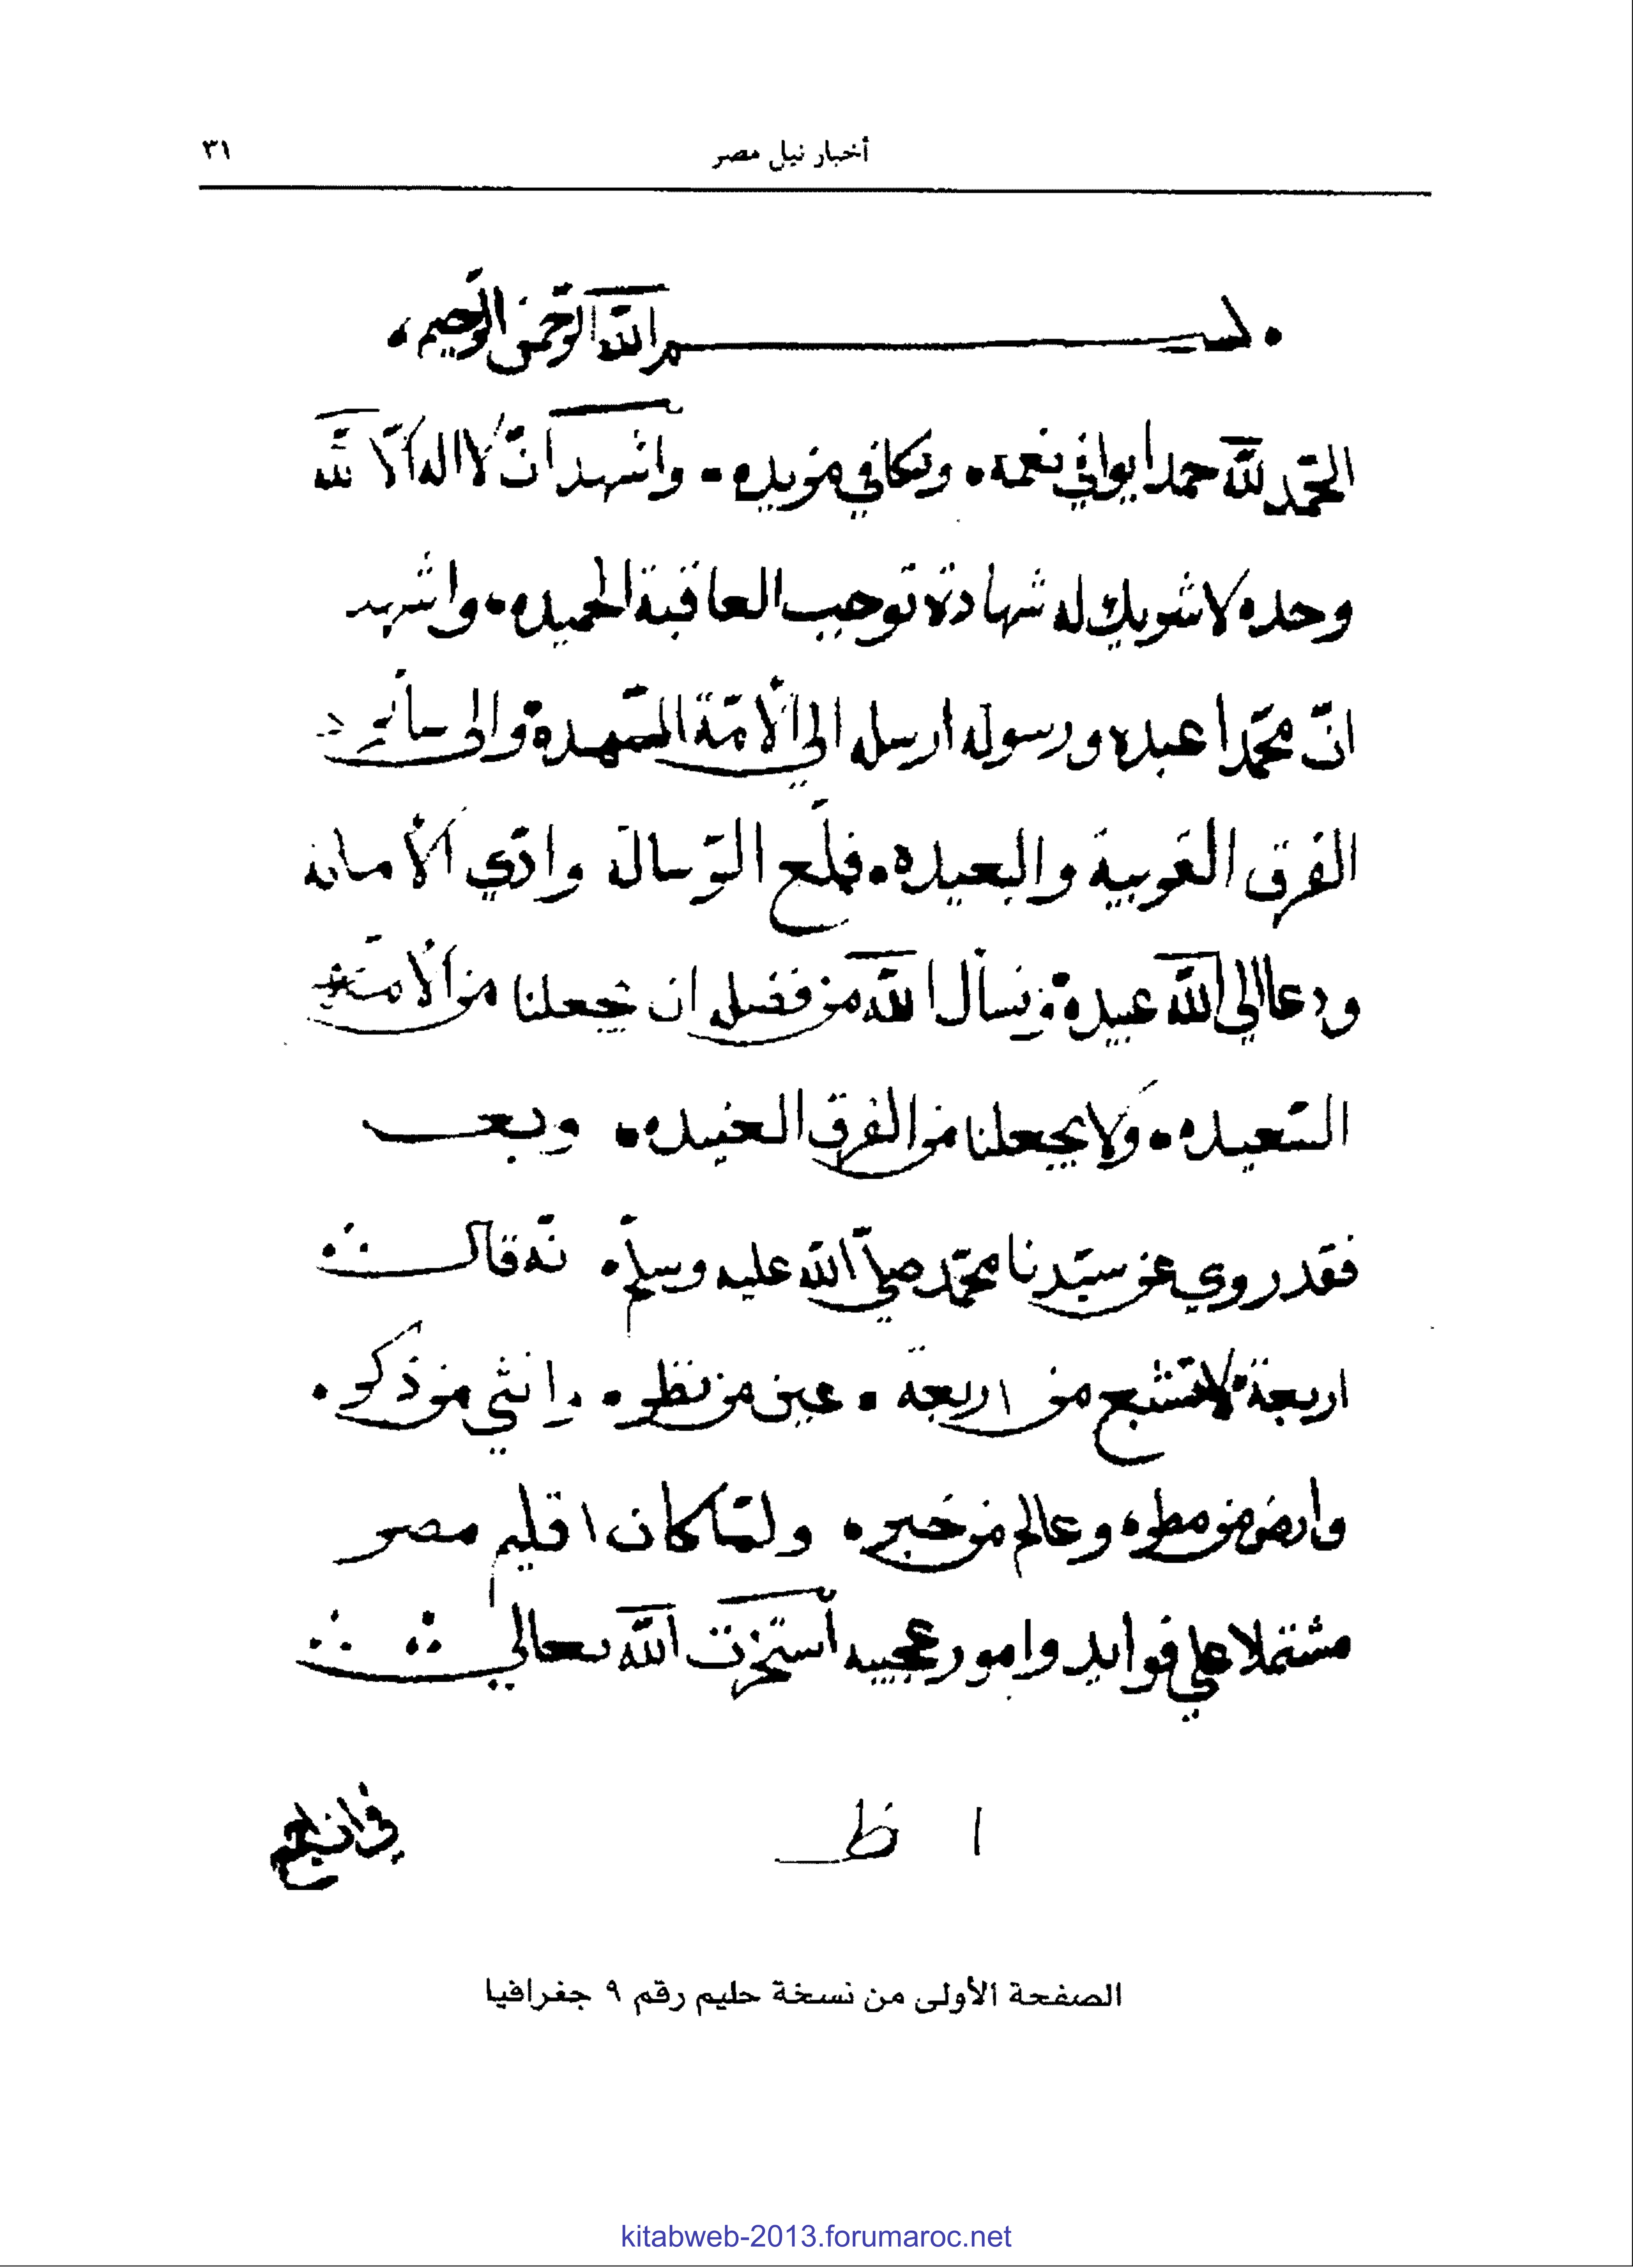 أخبار نيل مصر ٣١
بسم الله الرحمن الرحيم
الحمد لله حمدا يوافي نعمه ويكافي مزيده واشهد ان لا اله الا الله
وحده لا شريك له شهادة توجب العاقبة الحميده واشهد
انّ محمّدا عبده ورسوله ارسله الي الأمّة والى سائر
الفرق القريبة والبعيده فبلّغ الرّسالة وادّي الأمانه
ودعا الي الله عبيدة نسأل الله من فضله ان يجعلنا من الأمّة
السّعيده ولا يجعلنا من الفرق العنيده وبعد
فقد روي عن سيّدنا محمّد صلّي الله عليه وسلّم انّه قال
اربعة لا تشبع من اربعة عين من نظر وانثي من ذكر
وارض من مطر وعالم من خبر ولمّا كان اقليم مصر
مشتملا علي فوايد وامور عجيبه استخرت الله تعالي
ا ظ
في ان
الصفحة الأولى من نسخة حليم رقم ٩ جغرافيا
kitabweb-2013.forumaroc.net